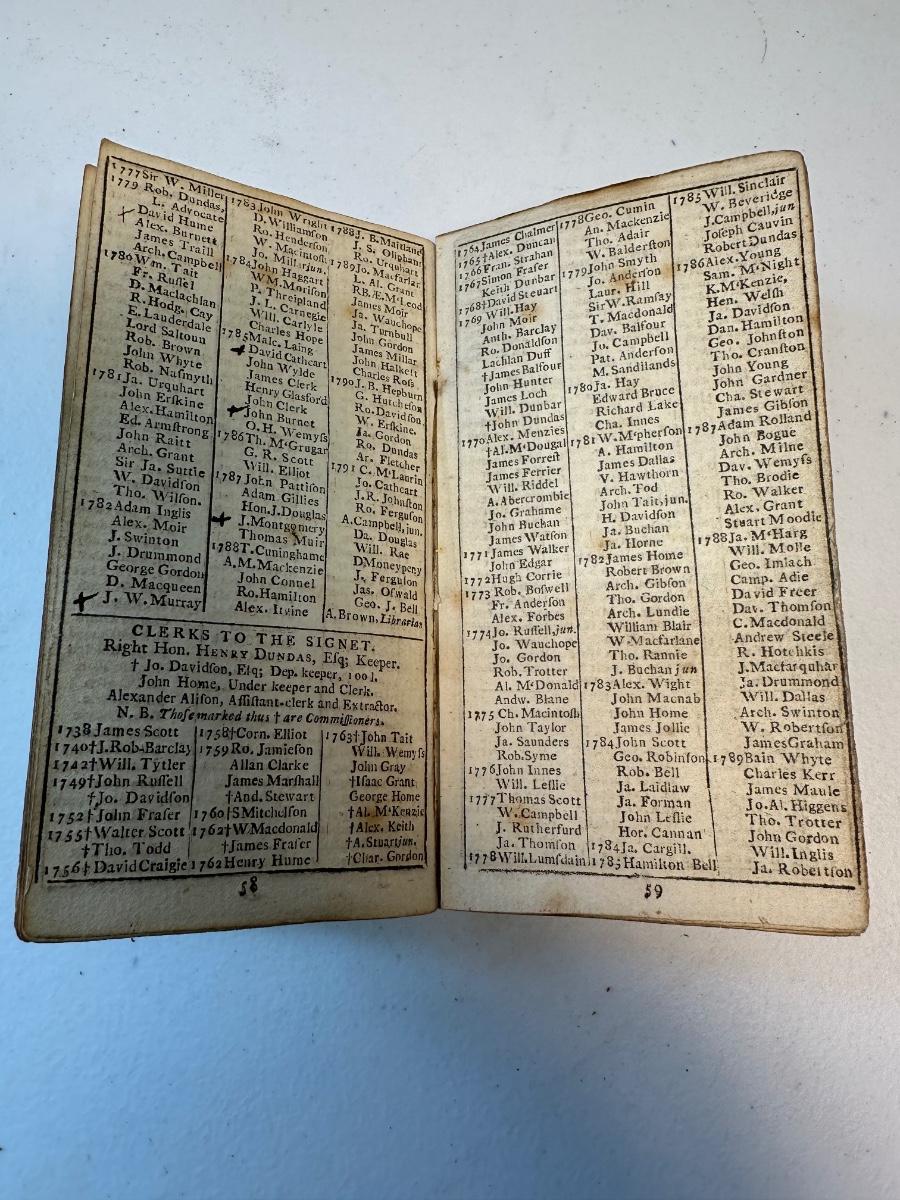 1777 Sir W. Miller
1779 Rob. Dundas,
L. Advocate
David Hume
Alex. Burnett
James Traill
Arch. Campbell
1780 Wm. Tait
Fr. Russel
D. Maclachlan
R. Hodg. Cay
E. Lauderdale
Lord Saltoun
Rob. Brown
John Whyte
Rob. Nasmyth
1781 Ja. Urquhart
John Erskine
Alex. Hamilton
Ed. Armstrong
John Raitt
Arch. Grant
Sir Ja. Suttie
W. Davidson
Tho. Wilson.
1782 Adam Inglis
Alex. Moir
J. Swinton
J. Drummond
George Gordon
D. Macqueen
J. W. Murray
1783 John Wright
D. Williamson
Ro. Henderson
W. Macintosh
Jo. Millar jun.
1784 John Haggart
W M. Morison
P. Threipland
J. L. Carnegie
Will. Carlyle
Charles Hope
1785 Malc. Laing
David Cathcart
John Wylde
James Clerk
Henry Glasford
John Clerk
John Burnet
O. H. Wemyss
1786 Th. M'Grugar
G. R. Scott
Will. Elliot
1787 John Pattison
Adam Gillies
Hon. J. Douglas
J. Montgomery
Thomas Muir
1788 T. Cuninghame
A. M. Mackenzie
John Connel
Ro. Hamilton
Alex. Irvine
1788 J. B. Maitland
J. S. Oliphant
Ro. Urquhart
1789 Jo. Macfarlar
L. Al. Grant
RB. Æ. M'Leod
James Moir
Ja. Wauchope
Ja. Turnbull
John Gordon
James Millar
John Halkett
Charles Ross
1790 J. B. Hepburn
G. Hutcheson
Ro. Davidson
W. Erskine.
Ja. Gordon
Ro. Dundas
Ar. Fletcher
1791 C. M'Laurin
Jo. Cathcart
J. R. Johnston
Ro. Ferguson
A. Campbell, jun.
Da. Douglas
Will. Rae
D Moneypeny
J. Ferguson
Jas. Oswald
Geo. J. Bell
A. Brown, Librarian
CLERKS TO THE SIGNET.
Right Hon. HENRY DUNDAS, Esq; Keeper.
† Jo. Davidson, Esq; Dep. keeper, 100 l.
John Home, Under keeper and Clerk.
Alexander Alison, Assistant-clerk and Extractor.
N. B. Those marked thus † are Commissioners.
1738 James Scott
1740 † J. Rob. Barclay
1742 † Will. Tytler
1749 † John Russell
† Jo. Davidson
1752 † John Fraser
1755 † Walter Scott
† Tho. Todd
1756 ‡ David Craigie
1758 † Corn. Elliot
1759 Ro. Jamieson
Allan Clarke
James Marshall
† And. Stewart
1760 † S Mitchelson
1762 † W. Macdonald
† James Fraser
1762 Henry Hume
1763 † John Tait
Will. Wemyss
John Gray
† Isaac Grant
George Home
† Al. M'Kenzie
† Alex. Keith
† A. Stuart jun.
† Char. Gordon
58
1764 James Chalmer
1765 † Alex. Duncan
1766 Fran. Strahan
1767 Simon Fraser
Keith Dunbar
1768 † David Steuart
1769 Will. Hay
John Moir
Anth. Barclay
Ro. Donaldson
Lachlan Duff
† James Balfour
John Hunter
James Loch
Will. Dunbar
† John Dundas
1770 Alex. Menzies
† Al. M'Dougal
James Forrest
James Ferrier
Will. Riddel
A. Abercrombie
Jo. Grahame
John Buchan
James Watson
1771 James Walker
John Edgar
1772 Hugh Corrie
1773 Rob. Boswell
Fr. Anderson
Alex. Forbes
1774 Jo. Russell, jun.
Jo. Wauchope
Jo. Gordon
Rob. Trotter
Al. McDonald
Andw. Blane
1775 Ch. Macintosh
John Taylor
Ja. Saunders
Rob. Syme
1776 John Innes
Will. Leslie
1777 Thomas Scott
W. Campbell
J. Rutherfurd
Ja. Thomson
1778 Will. Lumsdain
1778 Geo. Cumin
An. Mackenzie
Tho. Adair
W. Balderston
1779 John Smyth
Jo. Anderson
Laur. Hill
Sir W. Ramsay
T. Macdonald
Dav. Balfour
Jo. Campbell
Pat. Anderson
M. Sandilands
1780 Ja. Hay
Edward Bruce
Richard Lake
Cha. Innes
1781 W. M'pherson
A. Hamilton
James Dallas
V. Hawthorn
Arch. Tod
John Tait, jun.
H. Davidson
Ja. Buchan
Ja. Horne
1782 James Home
Robert Brown
Arch. Gibson
Tho. Gordon
Arch. Lundie
William Blair
W. Macfarlane
Tho. Rannie
J. Buchan jun
1783 Alex. Wight
John Macnab
John Home
James Jollie
1784 John Scott
Geo. Robinson
Rob. Bell
Ja. Laidlaw
Ja. Forman
John Leslie
Hor. Cannan
1784 Ja. Cargill.
1785 Hamilton Bell
1785 Will. Sinclair
W. Beveridge
J. Campbell, jun
Joseph Cauvin
Robert Dundas
1786 Alex. Young
Sam. M'Night
K. M'Kenzie,
Hen. Welsh
Ja. Davidson
Dan. Hamilton
Geo. Johnston
Tho. Cranston
John Young
John Gardner
Cha. Stewart
James Gibson
1787 Adam Rolland
John Bogue
Arch. Milne
Dav. Wemyss
Tho. Brodie
Ro. Walker
Alex. Grant
Stuart Moodie
1788 Ja. M'Harg
Will. Molle
Geo. Imlach
Camp. Adie
David Freer
Dav. Thomson
C. Macdonald
Andrew Steele
R. Hotchkis
J. Macfarquhar
Ja. Drummond
Will. Dallas
Arch. Swinton
W. Robertson
James Graham
1789 Bain Whyte
Charles Kerr
James Maule
Jo. Al. Higgens
Tho. Trotter
John Gordon
Will. Inglis
Ja. Robertson
59